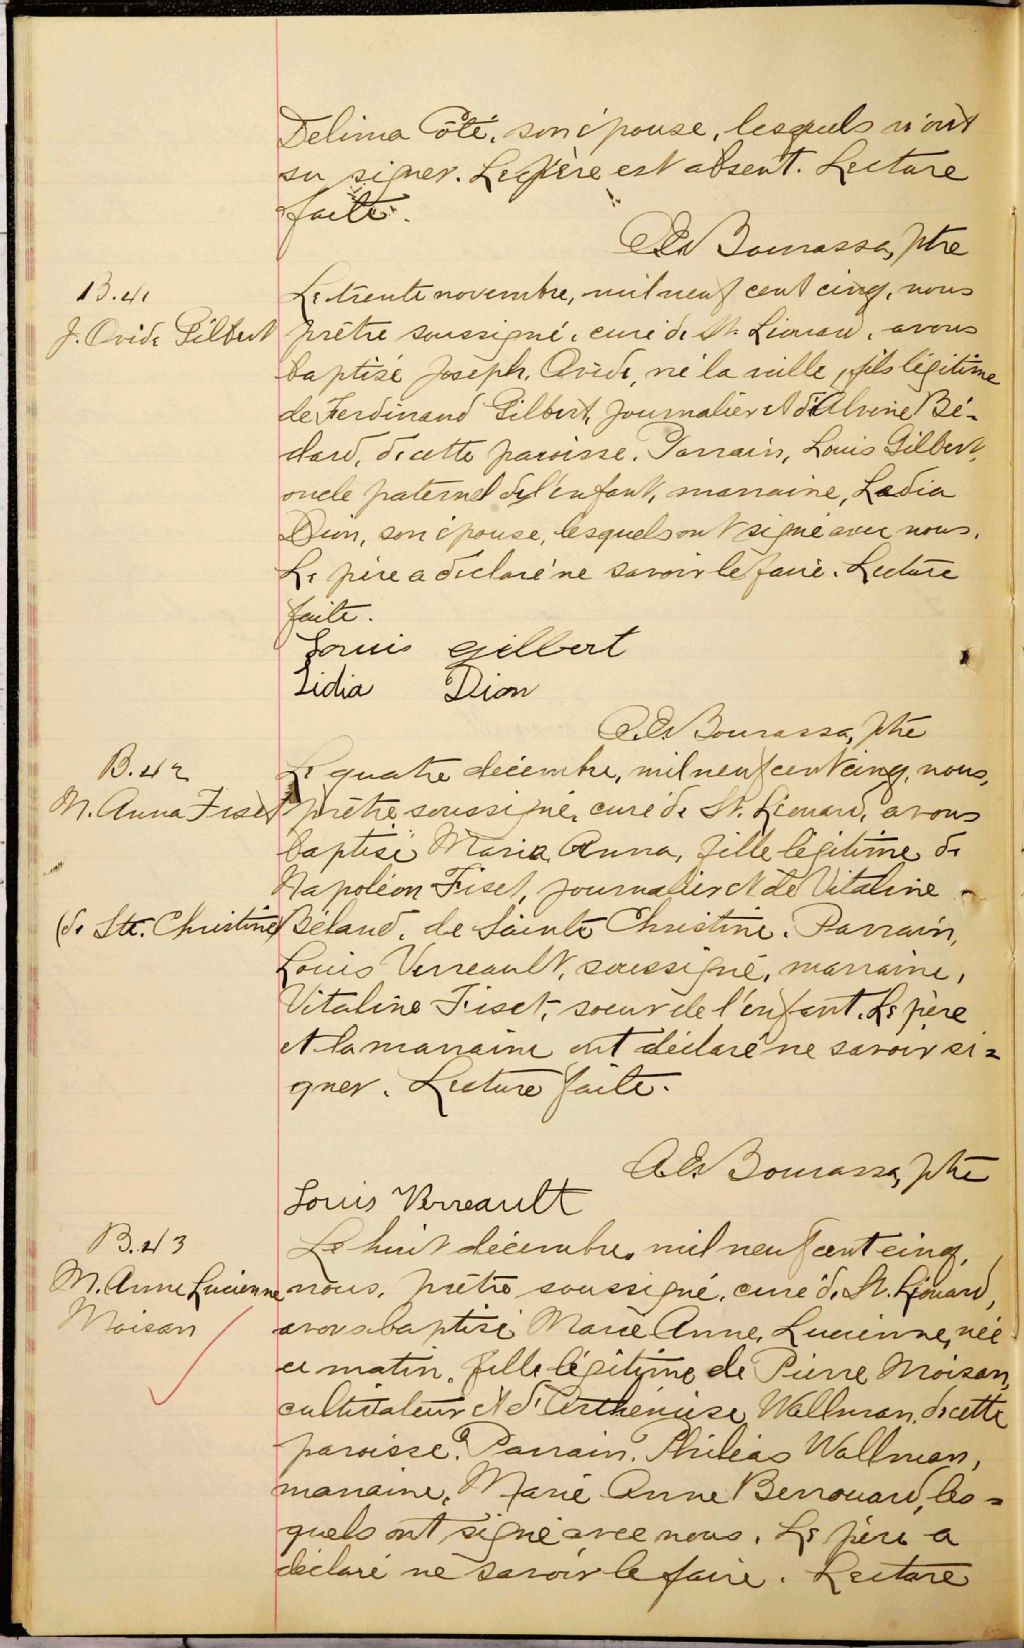 Delima Côté, son épouse, lesquels n'ont
su signer. Le père est absent. Lecture
faite.
A. E. Bourassa, ptre
B. 41
J. Ovide Gilbert
Le trente novembre, mil neuf cent cinq, nous
prêtre soussigné, curé de St. Léonard, avons
baptisé Joseph, Ovide, né la veille, fils légitime
de Ferdinand Gilbert, journalier et d'Alvine Bé-
dard, de cette paroisse. Parrain, Louis Gilbert,
oncle paternel de l'enfant, marraine, Ledia
Dion, son épouse, lesquels ont signé avec nous.
Le père a déclaré ne savoir le faire. Lecture
faite.
Louis Gilbert
Lidia Dion
A. E. Bourassa, ptre
B. 42
M. Anna Fiset
Le quatre décembre, mil neuf cent cinq, nous,
prêtre soussigné, curé de St. Léonard, avons
baptisé Maria Anna, fille légitime de
Napoléon Fiset, journalier et de Vitaline
(de Ste. Christine)
Béland, de Sainte Christine. Parrain,
Louis Verreault, soussigné, marraine,
Vitaline Fiset, soeur de l'enfant. Le père
et la marraine ont déclaré ne savoir si=
gner. Lecture faite.
A. E. Bourassa, ptre
Louis Verreault
B. 43
M. Anne Lucienne
Moisan
Le huit décembre, mil neuf cent cinq,
nous, prêtre soussigné, curé de St. Léonard,
avons baptisé Marie Anne, Lucienne, née
ce matin, fille légitime de Pierre Moisan,
cultivateur et d'Arthémise Wallman, de cette
paroisse. Parrain, Philéas Wallman,
marraine, Marie Anne Berrouard, les=
quels ont signé avec nous. Le père a
déclaré ne savoir le faire. Lecture